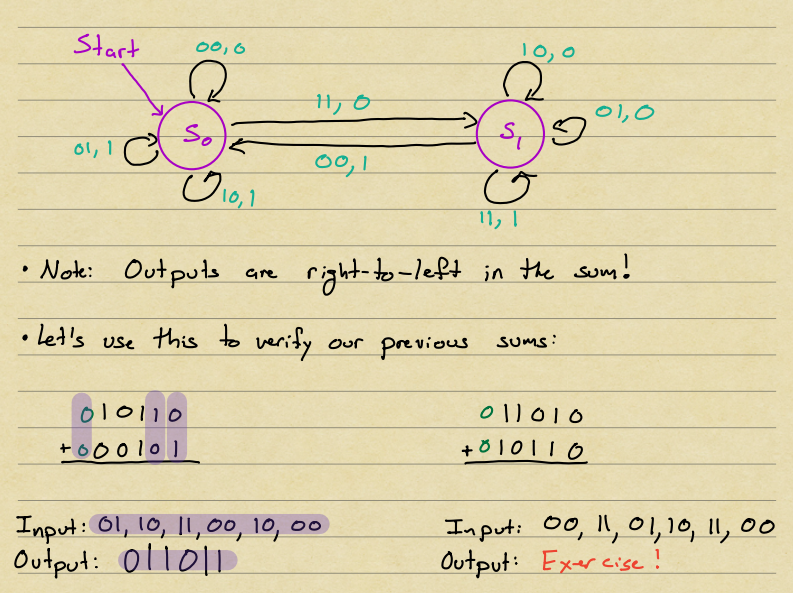 Start
00,0
10,0
11, 0
01,0
S0
S1
01, 1
00,1
10,1
11, 1
• Note: Outputs are right-to-left in the sum!
• Let's use this to verify our previous sums:
010110
+ 000101
011010
+ 010110
Input: 01, 10, 11, 00, 10, 00
Output: 011011
Input: 00, 11, 01, 10, 11, 00
Output: Exercise!